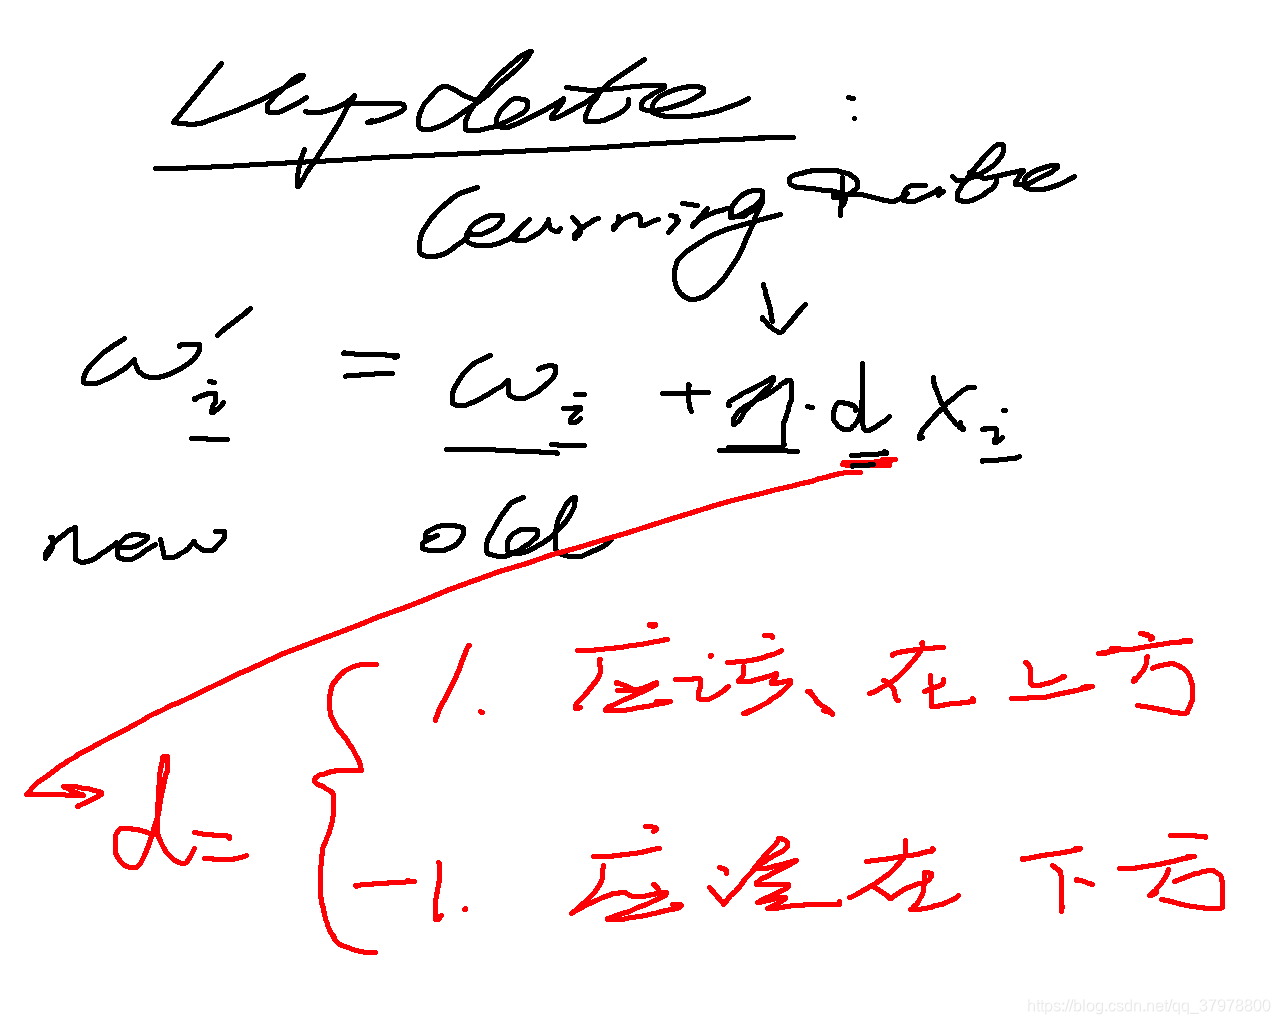 Update :
learning Rate
ω'i = ωi + η · d xi
new old
d = { 1. 应该在上方
-1. 应该在下方
https://blog.csdn.net/qq_37978800